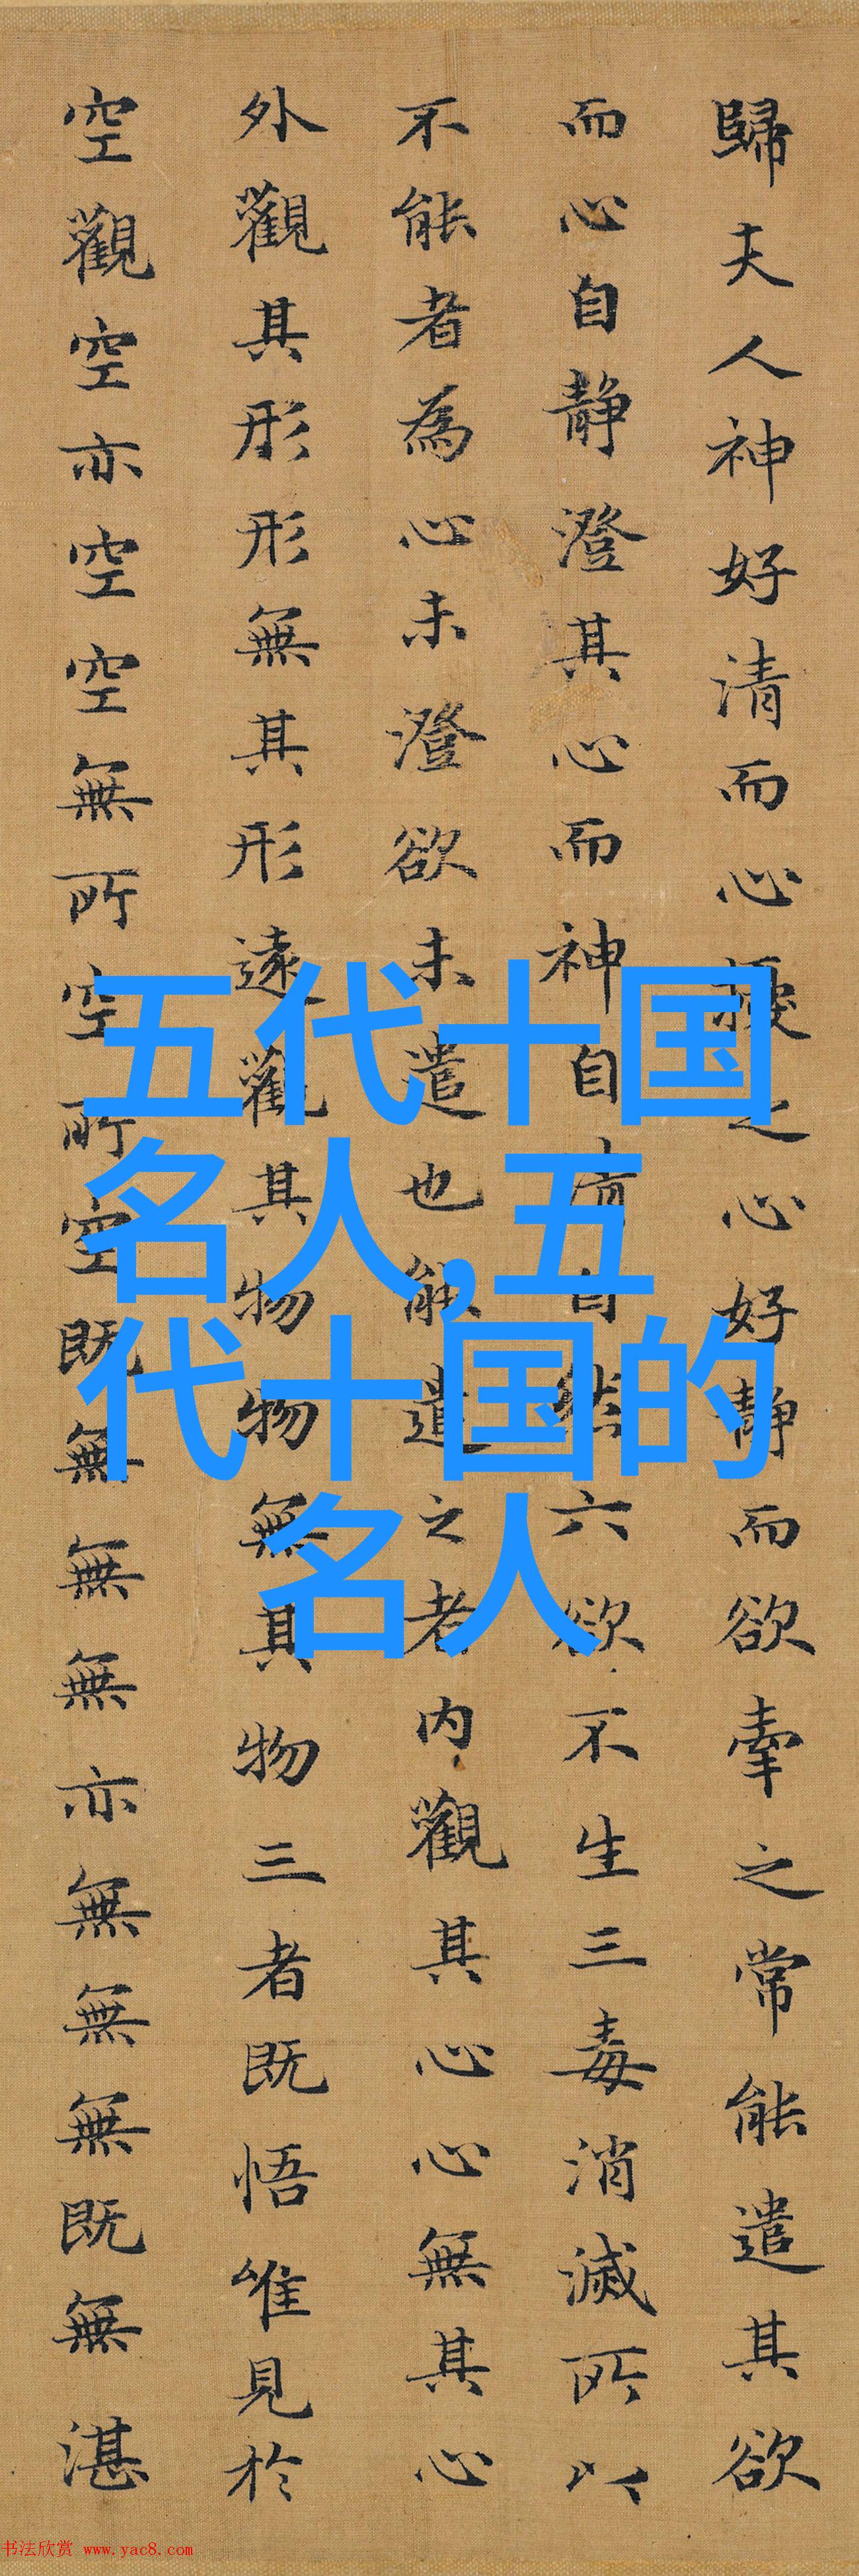 歸夫人神好清而心擾之心好静而欲牽之常能遣其欲
而心自静澄其心而神自清自然六欲不生三毒消滅所以
不能者為心未澄欲未遣也能遣之者内觀其心心無其心
外觀其形形無其形遠觀其物物無其物三者既悟唯見於
空觀空亦空空無所空所空既無無無亦無無無既無湛
五代十国
名人,五
代十国的
名人
书法欣赏 www.yac8.com